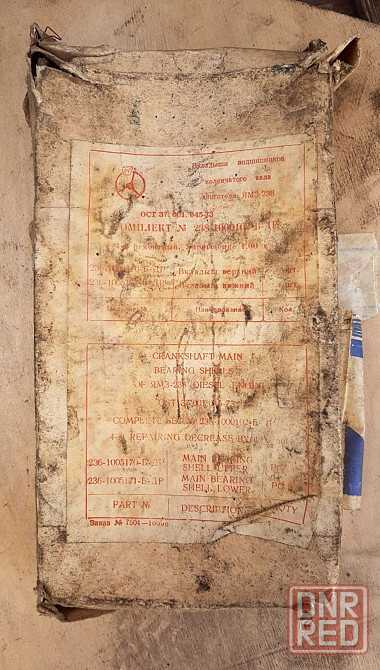 Вкладыши подшипников
коленчатого вала
двигателя ЯМЗ-238
ОСТ 37.001.045-73
КОМПЛЕКТ № 238-1000102-Б-ДР
ремонтный. Уменьшение 1,00
236-1005170-Б-ДР Вкладыш верхний шт.
236-1005171-Б-ДР Вкладыш нижний шт.
Наименование Кол.
CRANKSHAFT MAIN
BEARING SHELLS
OF ЯМЗ-238 DIESEL ENGINE
COMPLETE SET 238-1000102-Б
REPAIRING DECREASE BY
236-1005170-Б-ДР MAIN BEARING
SHELL UPPER PC
236-1005171-Б-ДР MAIN BEARING
SHELL LOWER PC
PART № DESCRIPTION
Заказ № 7604-10000
DNR
RED